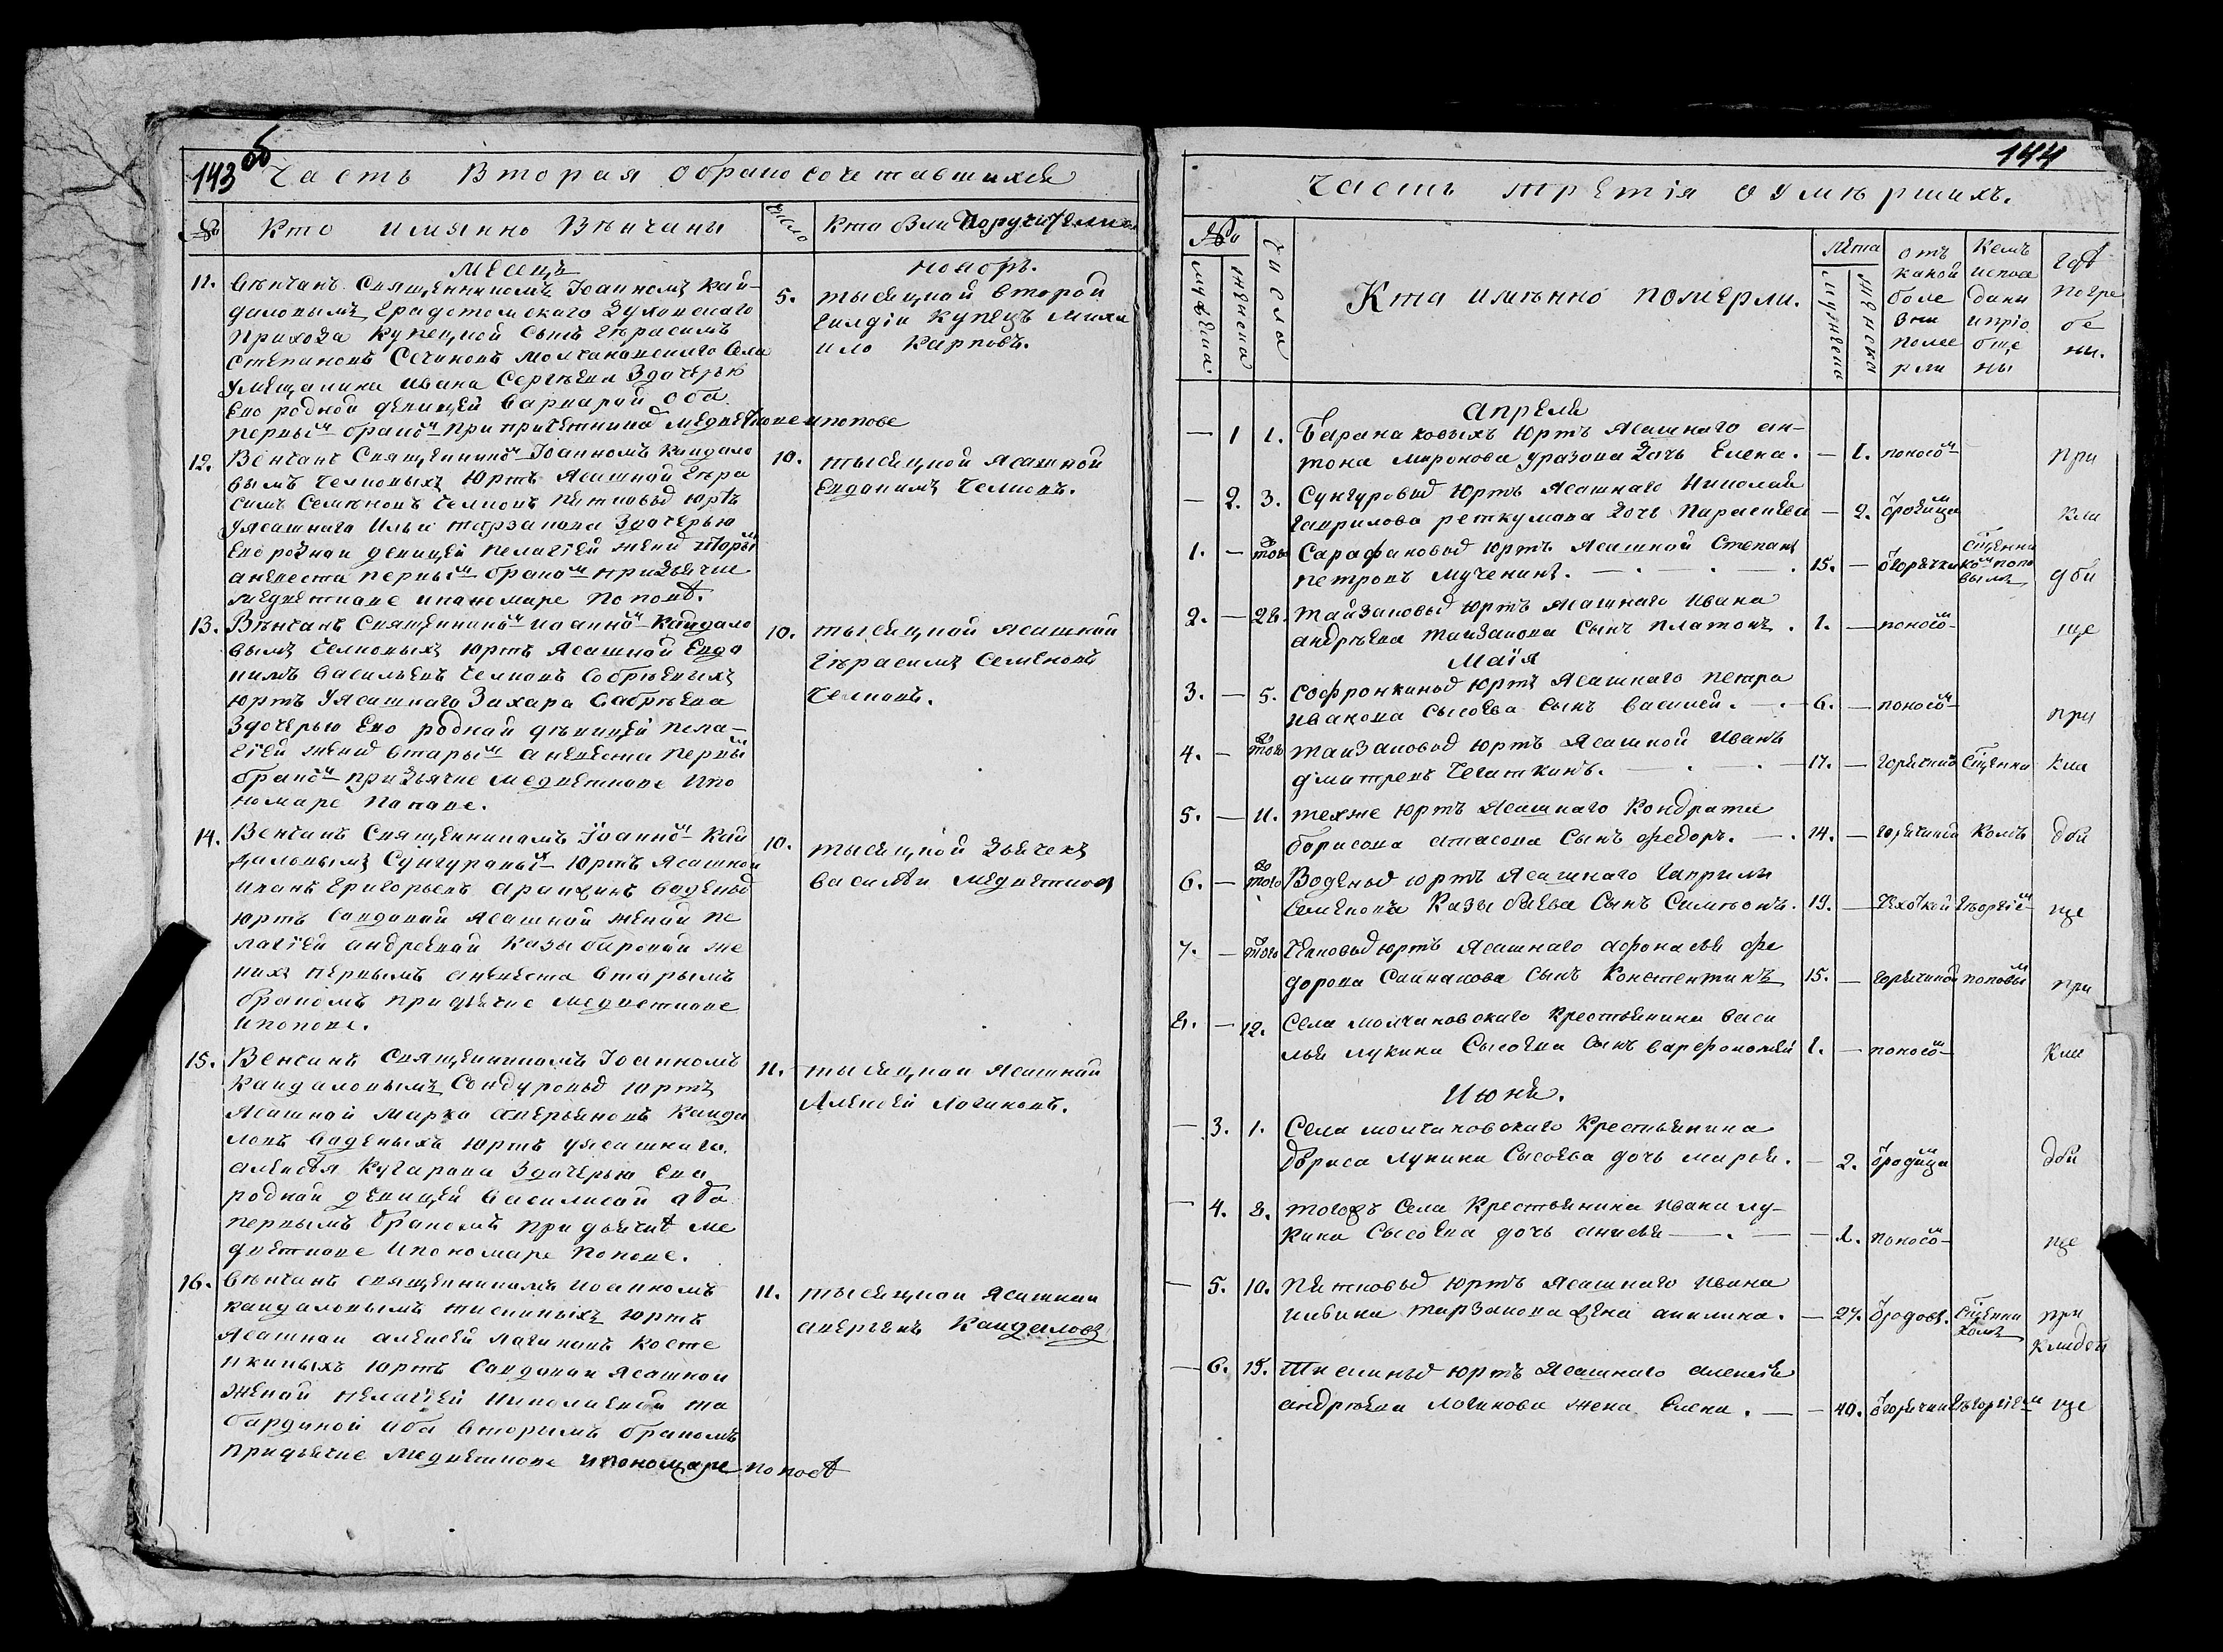 143 об
Часть Вторая обрако сочетавшихся
№ кто имянно Венчаны число кто были Поручители
Месецъ ноябрь.
11. Венчанъ Священникомъ Iоанномъ Кай-
даловымъ Градотомского Духовского
прихода купецкой сынъ Герасимъ
Степановъ Сечиновъ молчановского села
умещанина ивана Сергеева Здочерью
ево родной девицей варварой оба
первымъ бракомъ при причетника медветкове ипопове
5. тысяцкой второй
гилдiи купецъ миха
ило Карповъ.
12. Венчанъ Священникомъ Iоанномъ Кайдало
вымъ челновыхъ юртъ Ясашной Гера
симъ Семеновъ
уясашнаго Ильи тарзанова Здочерью
ево родной девицей пелагiей жених вторым
аневеста первымъ бракомъ придьячке
медветкове ипономаре попове.
10. тысяцкой ясашной
Евдокимъ
13. Венчанъ Священникомъ иоанномъ Кайдало
вымъ юртъ Ясашной Евдо
кимъ васильевъ
юртъ Уясашнаго Захара Сабреева
Здочерью ево родной девицей пела-
гiей жених вторымъ аневеста первым
бракомъ придьячке медветкове ипо
номаре попове.
10. тысяцкой ясашной
Герасимъ Семеновъ
14. Венчанъ Священникомъ Iоанномъ Кай
даловымъ Сунгуровы юртъ Ясашной
иванъ Григорьевъ
юртъ Совдовой Ясашной женой пе
лагiей андреевной же
нихъ первымъ аневеста вторымъ
бракомъ придьячке медветкове
ипопове.
10. тысяцкой дьячекъ
василей медветков
15. Венчанъ Священникомъ Iоанномъ
Кайдаловымъ юртъ
Ясашной марко аверьяновъ Кайда
ловъ юртъ уясашнаго
алексея Кучарова Здочерью ево
родной девицей василисой оба
первымъ бракомъ придьячке ме
дветкове ипономаре попове.
11. тысяцкой ясашной
Алексей логиновъ.
16. Венчанъ священникомъ иоанномъ
кайдаловымъ тискиныхъ юртъ
Ясашной алексей логиновъ Косте
нкиныхъ юртъ Совдовой Ясашной
женой пелагiей николаевой та
бардиной оба вторымъ бракомъ
придьячке медветкове ипономаре попове
11. тысяцкой ясашной
аверьянъ Кайдаловъ
144
часть третiя оумершихъ.
№ числа Кто именно померли. лета отъ какой боле зни поме рли Кемъ испове даны иприо бще ны где погре бе ны.
мужеска женска мужеска женска
апреля
— 1 1. Барана ковыхъ юртъ ясашнаго ан-
тона миронова уразова дочь Елена. — 1. поносом при
— 2. 3. Сунгуровых юртъ ясашнаго Николая
гаврилова реткумова дочь Парасковья — 2. кла
1. — того Сарафановых юртъ ясашной Степанъ
петровъ Мученинъ. 15. — отгорячки Священни ком попо вымъ дби
2. — 28. тайзаковых юртъ ясашнаго ивана
андреева тайзакова сынъ платонъ. 1. — поносом ще
Маiя
3. — 5. Софронкиных юртъ ясашнаго петра
ивакова Сысоева сынъ василей. 6. — поносом при
4. — того тайзаковых юртъ ясашной иванъ
дмитревъ Чегаткинъ. 17. — горячкой Священни кла
5. — 11. техже юртъ ясашнаго Кондратия
борисова атасова сынъ федоръ. 14. — горячкой комъ дби
6. — того юртъ ясашнаго гаврилы
семенова сынъ Симеонъ. 19. — чехоткой Георгiем ще
7. — того юртъ ясашнаго афонасья фе
дорова Сайнакова сынъ Констентинъ 15. — горячкой поповым при
8. — 12. Села молчановского Крестьянина васи
лья лукина Сысоева сынъ варфоломей 1. — поносом кла
Июня.
— 3. 1. Села молчановского Крестьянина
бориса лукина Сысоева дочь марья. — 2. дби
— 4. 8. тогожъ Села Крестьянина ивана лу-
кина Сысоева дочь анисья — 1. поносом ще
— 5. 10. юртъ ясашнаго ивана
ильина тарзанова жена акилина. — 27. отродов. Священни комъ при кладби
— 6. 15. Тискиных юртъ ясашнаго алексея
андреева логинова жена Елена. — 40. отгорячки Георгiем ще